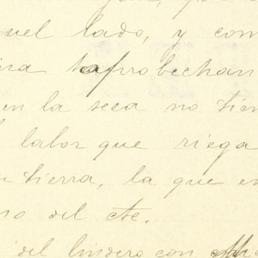 uel lado, y com
aprobechan
en la seca no tien
labor que riega
tierra, la que en
no del cte.
del lindero con